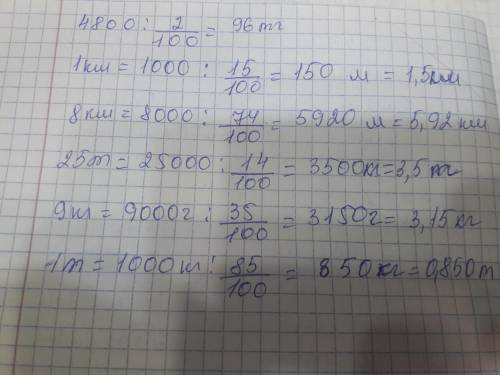 4800 : 2/100 = 96тг
1км = 1000 : 15/100 = 150 м = 1,5км
8км = 8000 : 74/100 = 5920 м = 5,92 км
25т = 25000 : 14/100 = 3500кг = 3,5 т
9кг = 9000г : 35/100 = 3150г = 3,15 кг
1т = 1000кг : 85/100 = 850кг = 0,850т